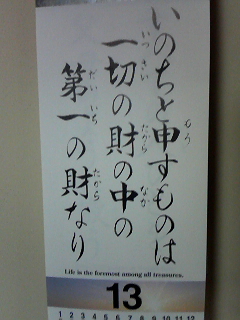 いのちと申すものは
一切の財の中の
第一の財なり
もう
いっさい
たから
なか
だいいち
たから
Life is the foremost among all treasures.
13
1 2 3 4 5 6 7 8 9 10 11 12